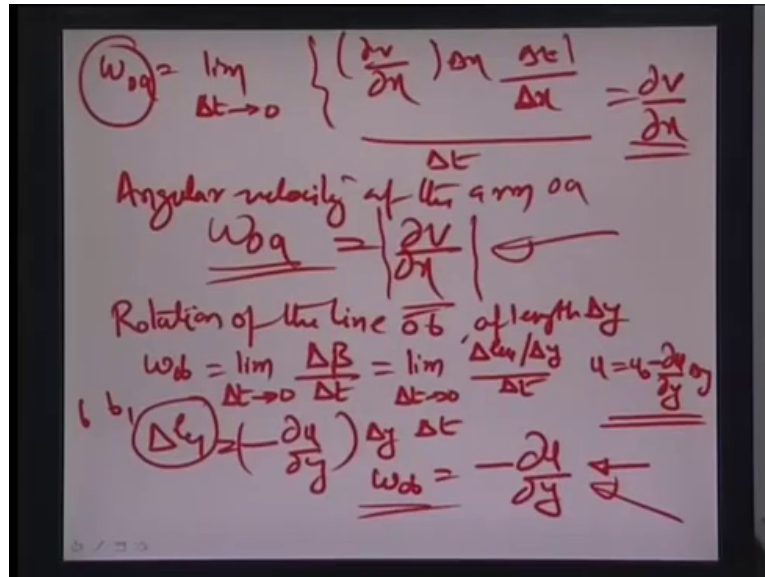 ω_oa = lim_{Δt→0} { (∂v/∂x) Δx Δt/Δx } / Δt = ∂v/∂x
Angular velocity of the arm oa
ω_oa = |∂v/∂x|
Rotation of the line ob, of length Δy
ω_ob = lim_{Δt→0} Δβ/Δt = lim_{Δt→0} (Δ /Δy)/Δt u = u_0 - ∂u/∂y Δy
b b_1 Δ = (-∂u/∂y) Δy Δt
ω_ob = -∂u/∂y